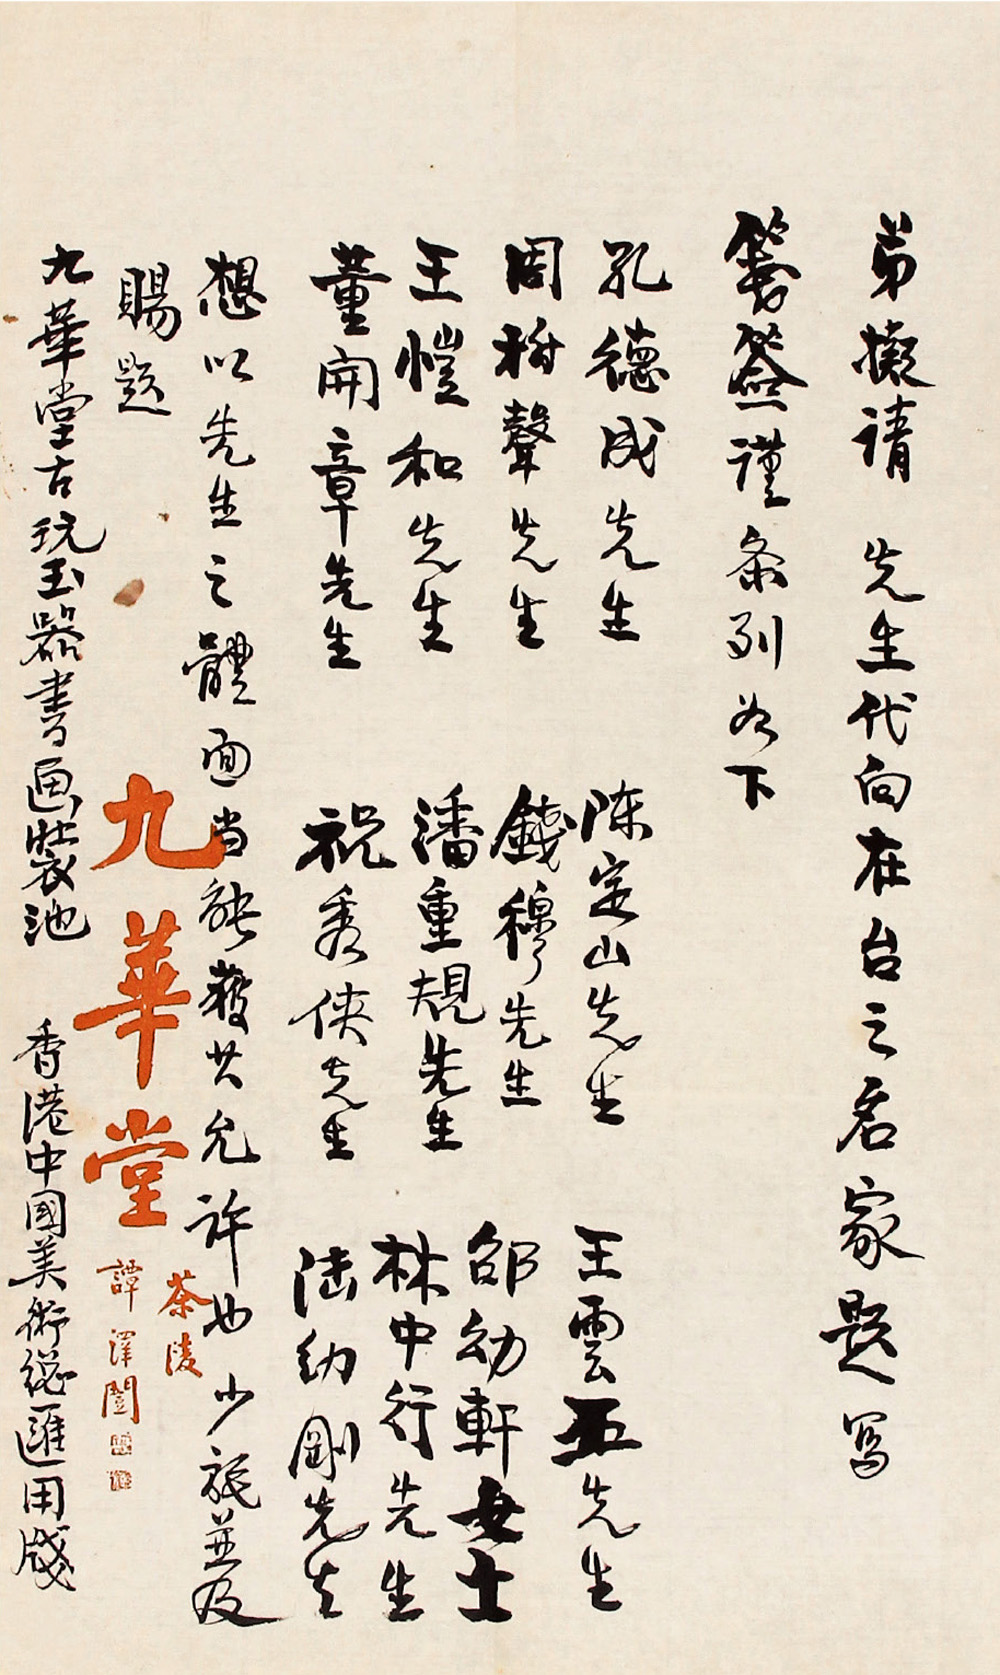 弟擬請 先生代向在台之名家題寫
簽謹条列如下
孔德成先生 陈定山先生 王雲五先生
周樹聲先生 錢穆先生 邵幼軒女士
王愷和先生 潘重規先生 林中行先生
董開章先生 祝秀俠先生 陆幼剛先生
想以先生之體面当能獲其允許也 少旄並及
賜題
九華堂
茶陵
譚澤闓
九華堂古玩玉器書画裝池 香港中國美術總匯用牋